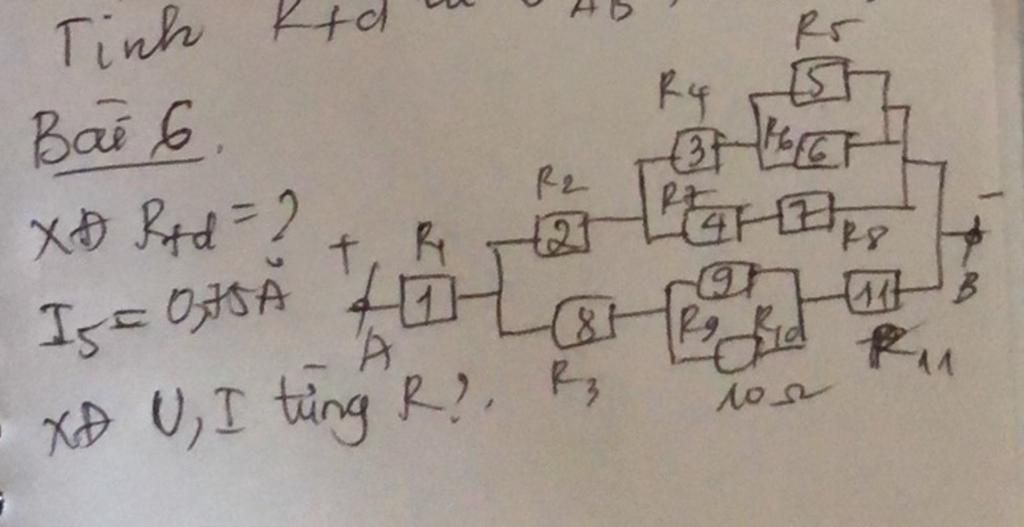 Tính Rtđ và U AB
Bài 6.
XĐ Rtđ = ?
I5 = 0,75A
XĐ U, I từng R?.
+
A
R1
1
R2
2
R3
8
R4
3
R5
5
R6
6
R7
4
7
R8
9
R9
R10
10Ω
11
R11
-
B